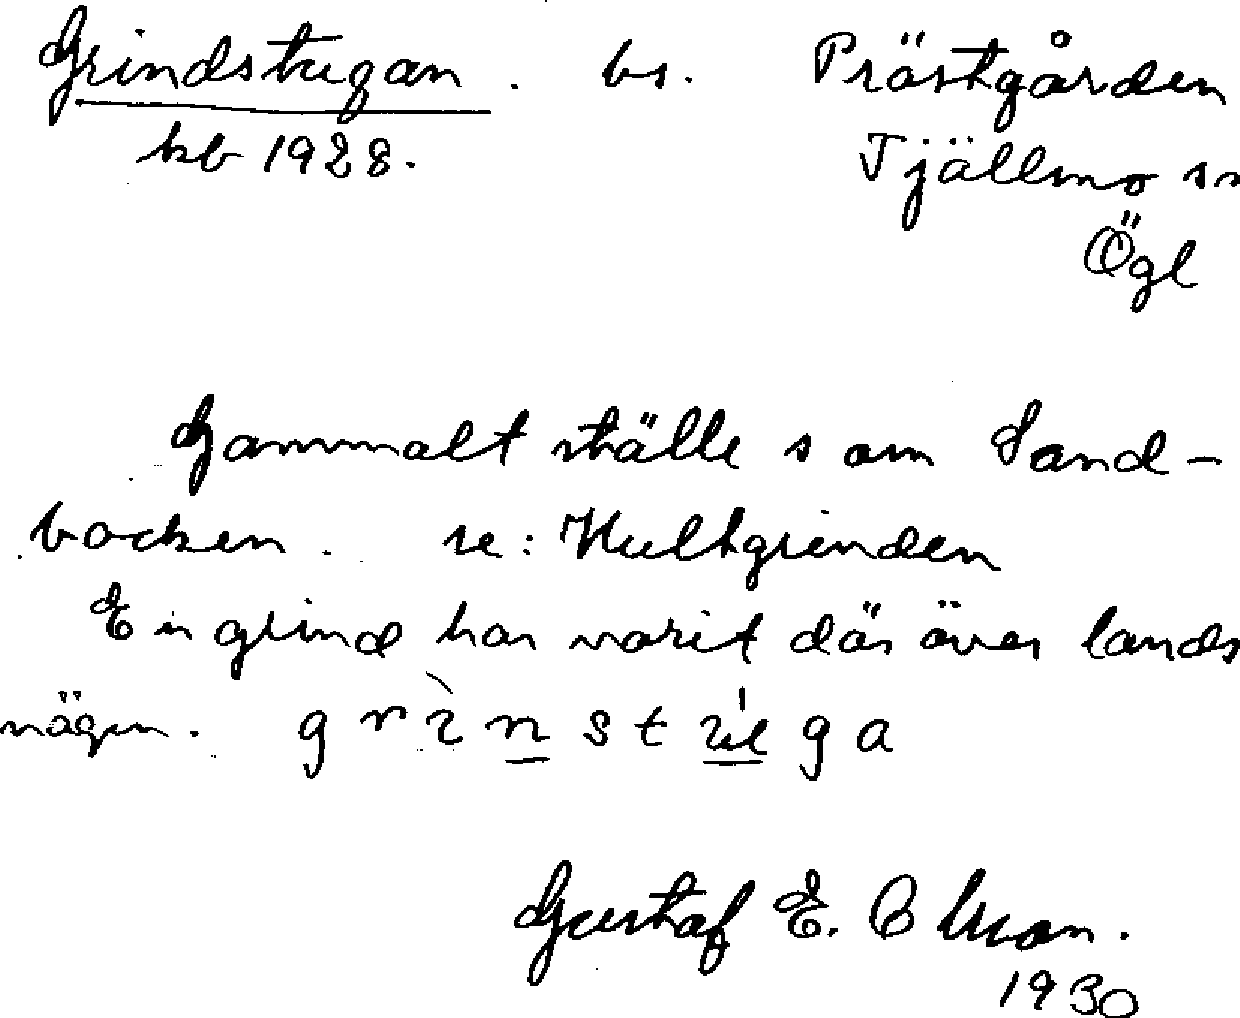 Grindstugan. bs. Prästgården
kb 1928. Tjällmo sn
Ögl
Gammalt ställe som Sand-
backen. se: Hultgrinden
En grind har varit där över lands
vägen. grìnstúga
Gustaf E. Olsson.
1930